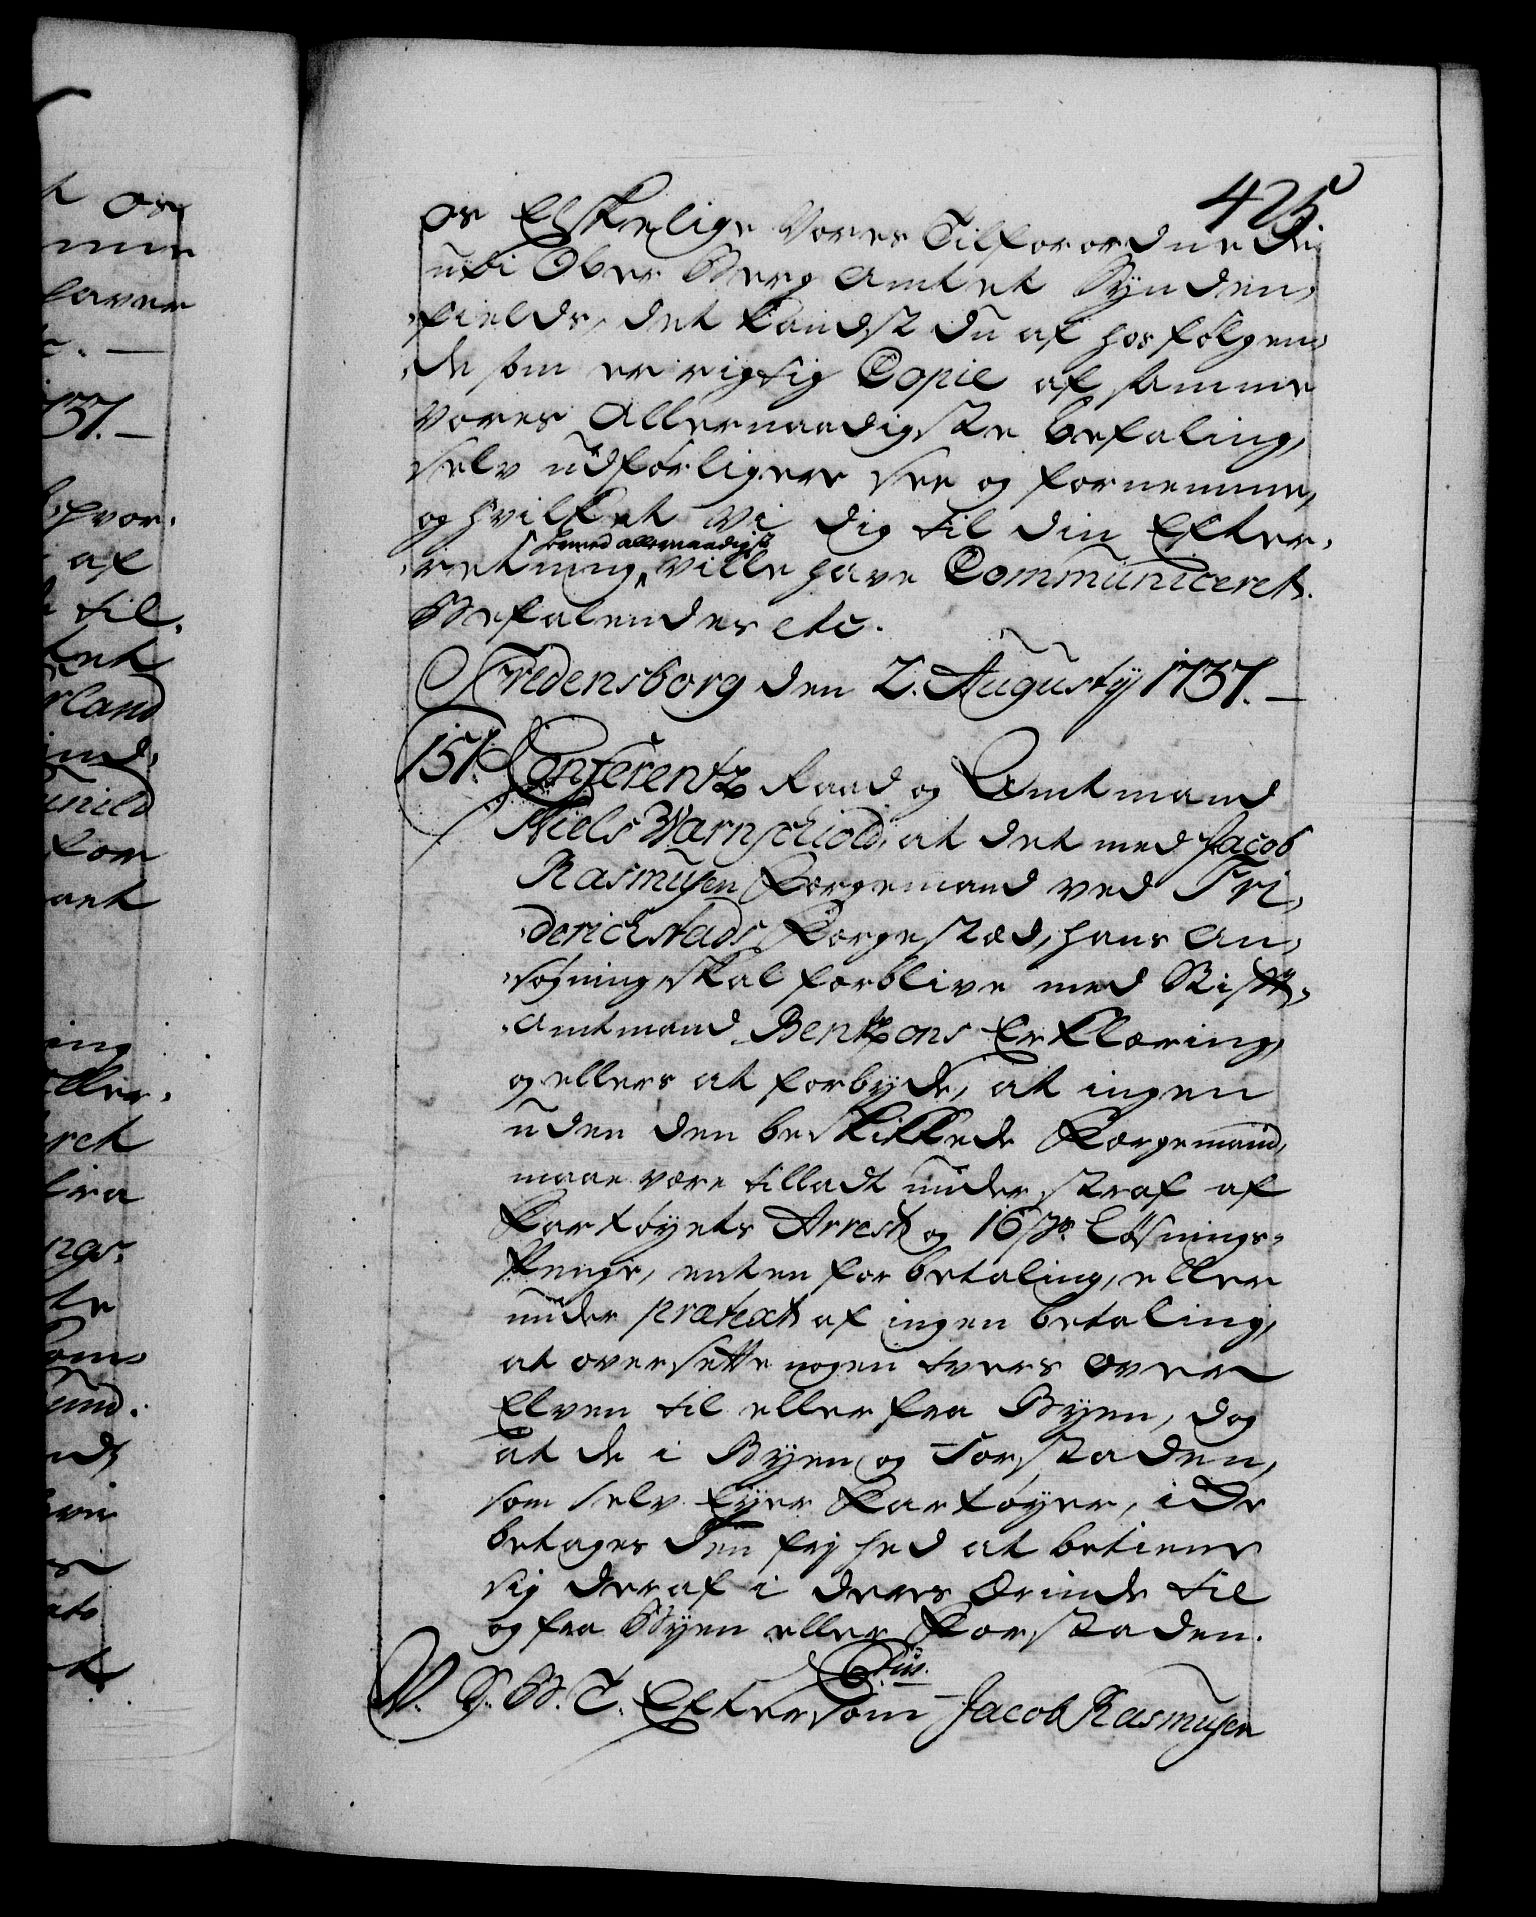 425
os Elskelige Vores Tilforordnede
udi Ober Berg Amtet Synden,
fields, det kandst du af hosfølgen,
de som er rigtig Copie af samme
Vores Allernaadigste befaling,
selv udførligere see og fornemme,
og hvilket Vi dig til din Efter,
hermed allernaadigst
retning ville have Communiceret.
Befalendes etc.
Fredensborg den 2. Augustij 1737. –
157. Conferentz Raad og Amtmand
Niels Warnschiold, at det med Jacob
Rasmusen Færgemand ved Fri,
derichstads Færgestæd, hans An,
søgning skal forblive med Stift,
Amtmand Bentzons Erklæring,
og ellers at forbyde, at ingen
uden den beskikkede Færgemand,
maae være tilladt under straf af
Fartøyets Arrest og 16 s. løsnings-
Penge, enten for betaling, eller
under prætext af ingen betaling,
at oversette nogen tvers over
Elven til eller fra Byen, dog
at de i Byen og Forstaden,
som selv Eyer Fartøyer, icke
betages den frjhed at betiene
sig deraf i deres Ærinde til
og fra Byen eller Forstaden.
V. G. B. T. Eftersom Jacob Rasmusen
os
af
til.
for